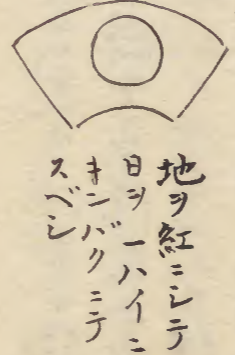 地ヲ紅ニシテ
日ヲ一ハイニ
キンバクニテ
スベシ